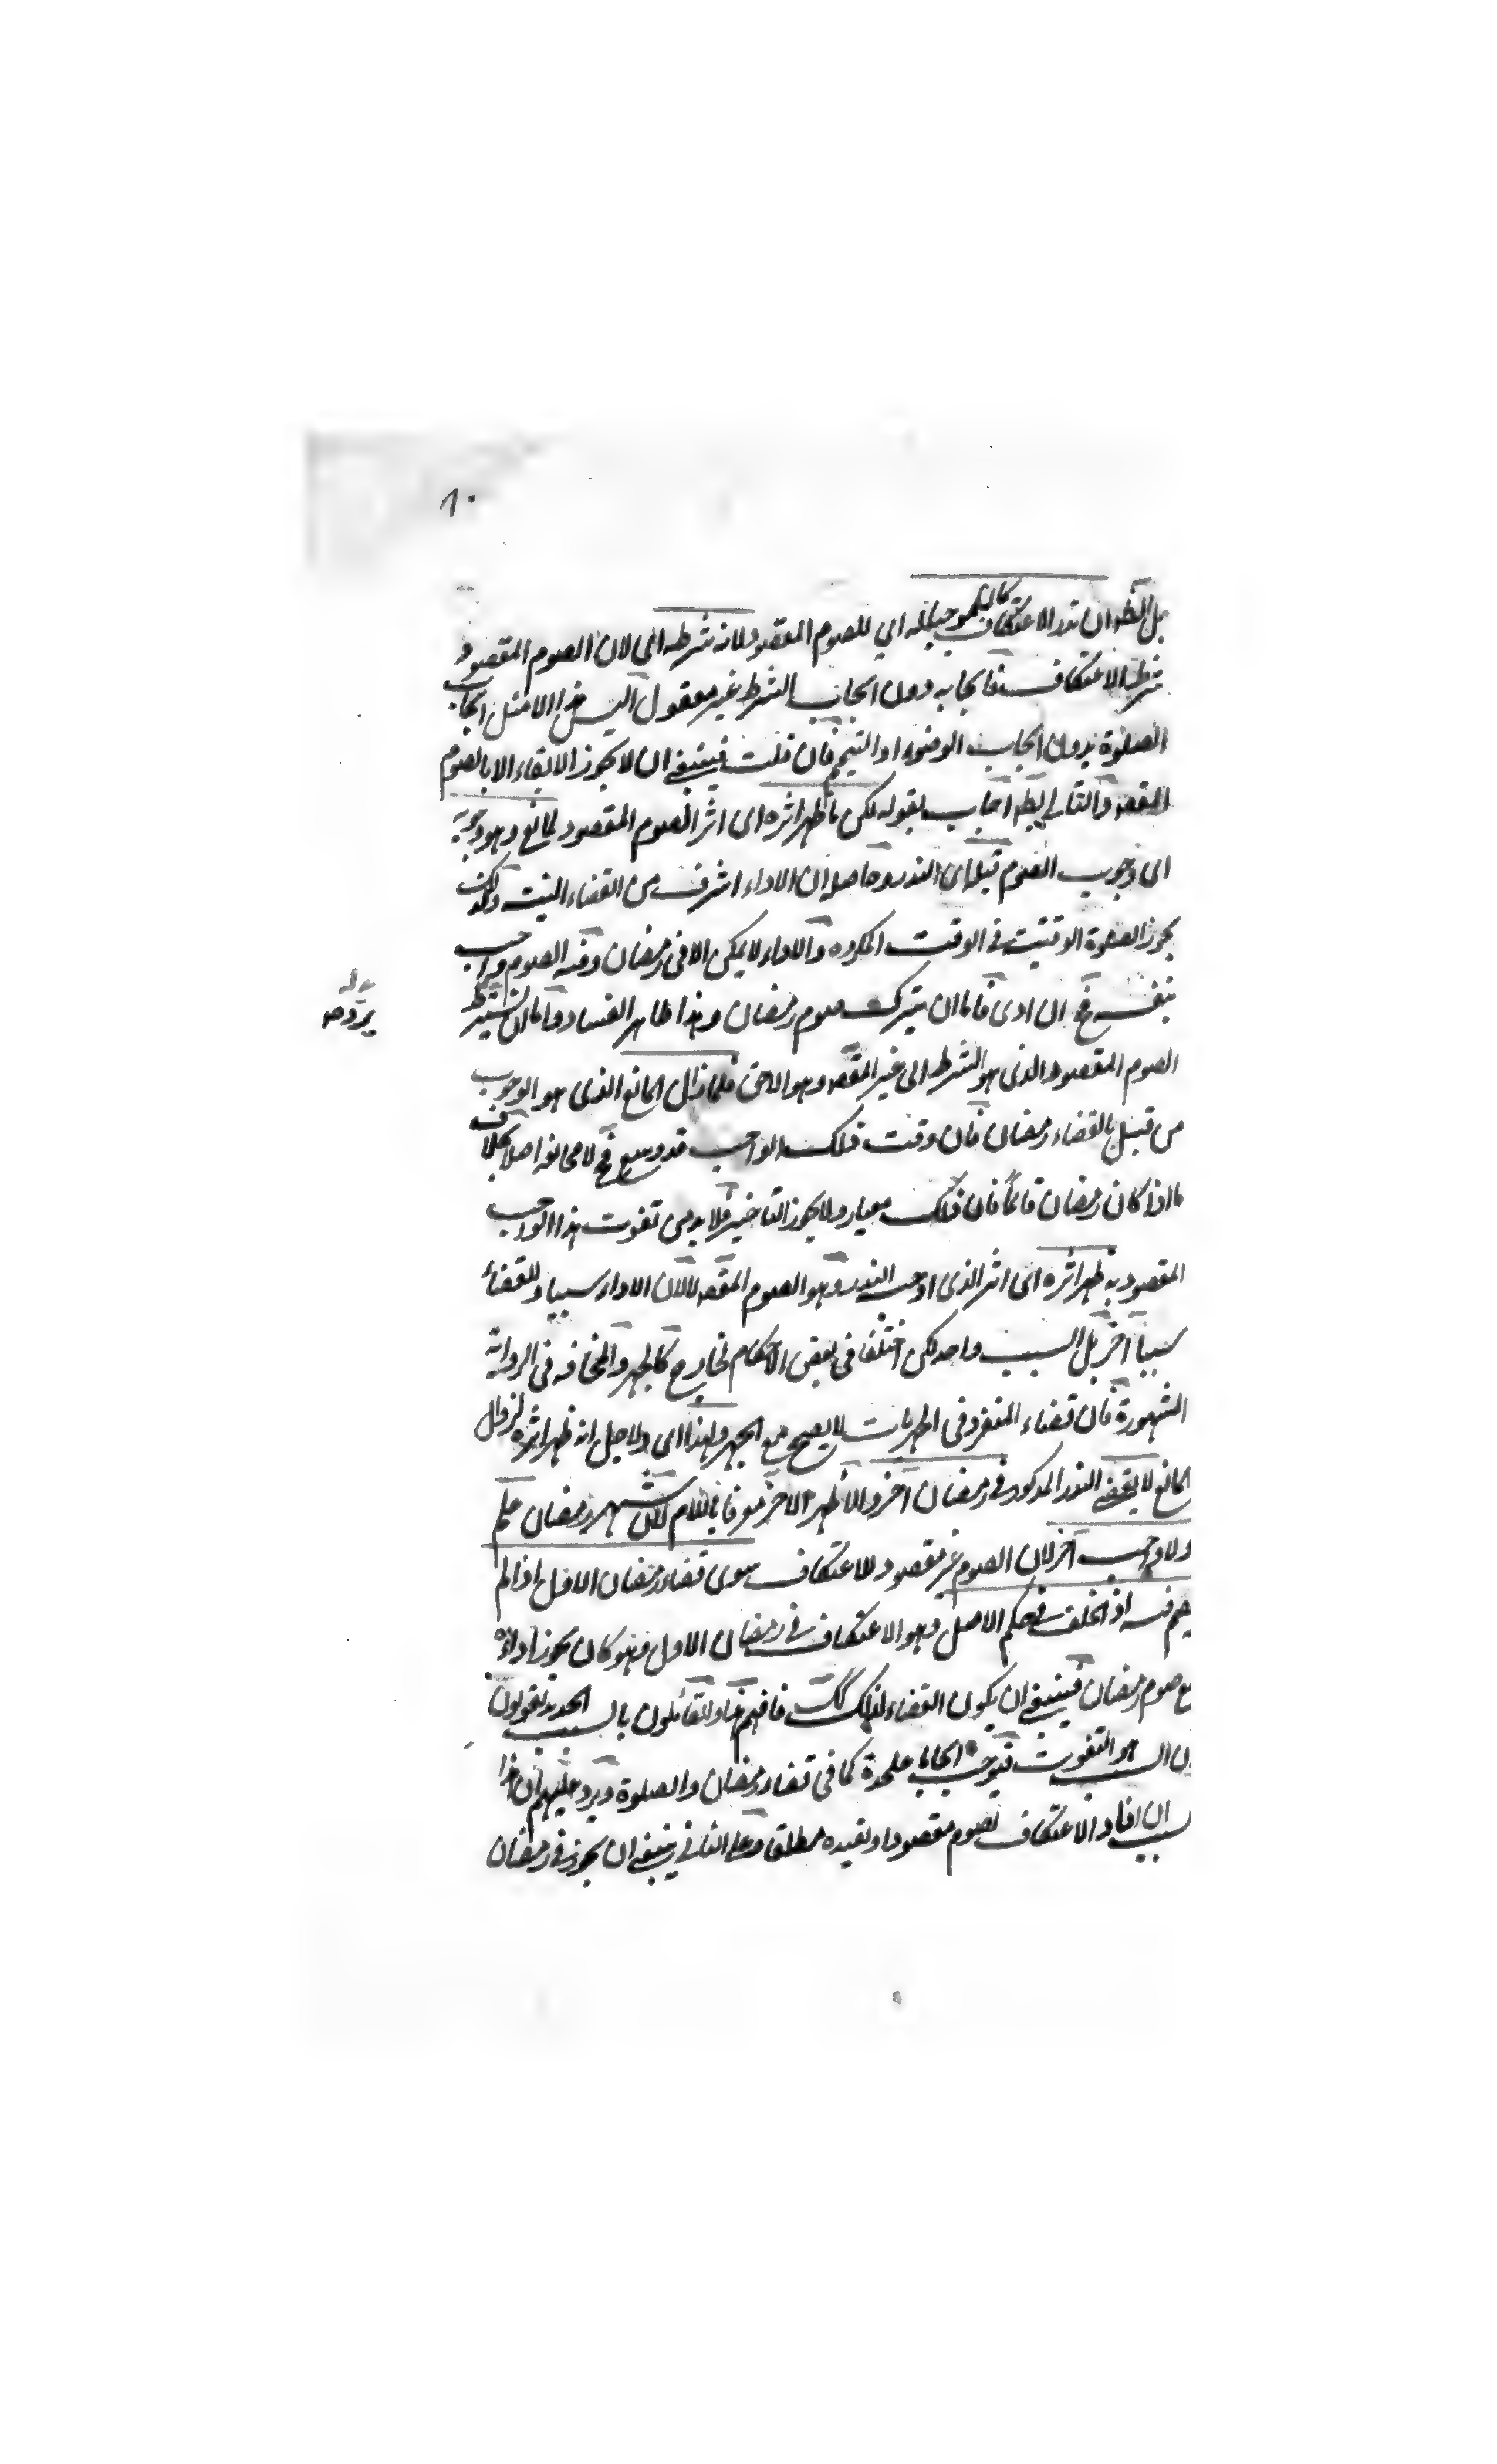 ١٠
بل الظ ان نذر الاعتكاف كالتكلم موجبا له اي للصوم المقصود لانه شرطه اي لان الصوم المقصود
شرط الاعتكاف فايجابه دون ايجاب الشرط غير معقول اليس هذا الا مثل ايجاب
الصلوة بدون ايجاب الوضوء او التيمم فان قلت فينبغي ان لا يجوز الايفاء الا بالصوم
المقصد والتالي بط اجاب بقوله لكن ما ظهر اثره اى اثر الصوم المقصود لمانع وهو وجوبه
اى وجوب الصوم قبله اى النذر وحاصله ان الاداء اشرف من القضاء البتة ولذلك
يجوز الصلوة الوقتية في الوقت المكروه والاداء لا يمكن الا فى رمضان وفيه الصوم واجب
بنفسه فح ان ادى فاما ان يترك صوم رمضان وهذا ظاهر الفساد واما ان
الصوم المقصود الذى هو الشرط الى غير المقصد وهو الاحق فلما زال المانع الذى هو الوجوب
من قبل بالقضاء رمضان فان وقت ذلك الواجب قد وسع فح لا مخالفة اصلا بخلاف
ما اذا كان رمضان قائما فان ذلك معيار ولا يجوز التاخير فلا بد من تفوت هذا الواجب
المقصود به ظهر اثره اى اثر الذى اوجب النذر وهو الصوم المقصد لا لان الاداء سببا وللقضاء
سببا آخر بل السبب واحد لكن اختلفا فى بعض الاحكام لخارج كالجهر والمخافة فى الرواية
المشهورة فان قضاء المنفرد فى الجهريات لا يصح مع الجهر ولهذا اى ولاجل انه ظهر اثره لزوال
المانع لا يقضى النذر المذكور فى رمضان آخر والاظهر الآخر معرفا باللام لان شهر رمضان علم
ولا واجب آخر لان الصوم غير مقصود للاعتكاف سوى قضاء رمضان الاول اذا لم
يصم فيه اذ الخلف في حكم الاصل وهو الاعتكاف في رمضان الاول وهو كان يجوز اداؤه
مع صوم رمضان فينبغي ان يكون القضاء لذلك كك فافهم هذا والقائلون بالسبب الجديد يقولون
ان السبب هو التفويت فيوجب ايجابا علحدة كما فى قضاء رمضان والصلوة ويرد عليهم ان هذا
السبب ان افاد الاعتكاف بصوم مقصود او يفيده مطلقا وعلى الثاني ينبغي ان يجوز فى رمضان